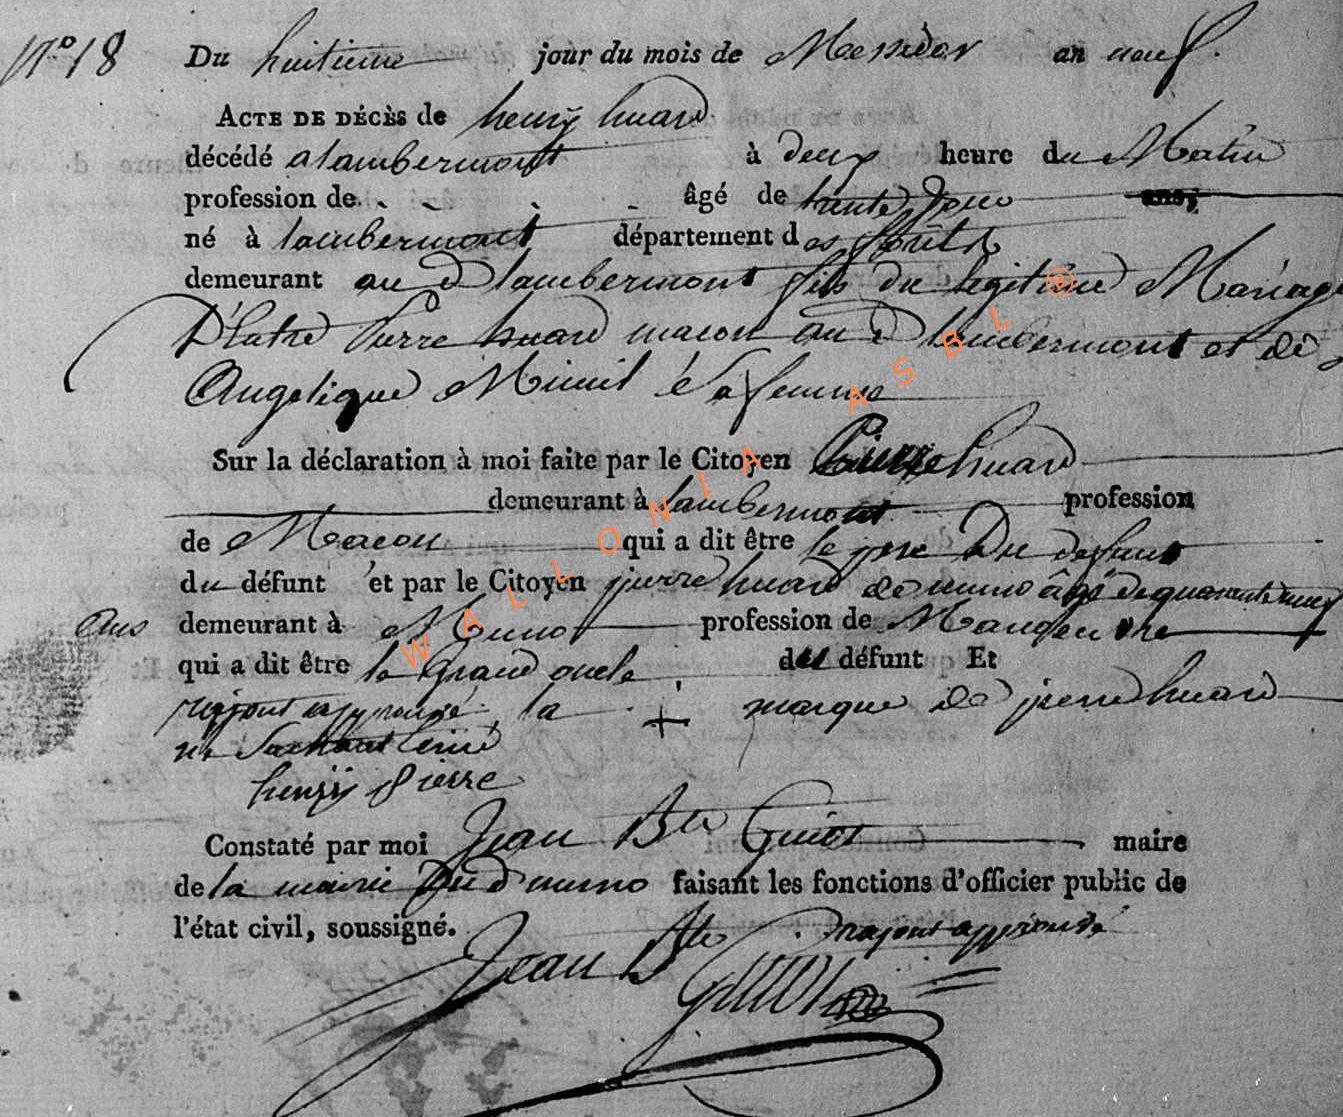 N° 18 Du huitieme jour du mois de Messidor an neuf.
ACTE DE DÉCÈS de henry huard
décédé a lambermont à deux heure du Matin
profession de âgé de trente jour ans;
né à lambermont département des forêts
demeurant au d lambermont fils du legitime Mariage
Pierre huard macon au d lambermont et de
Angelique sa femme
Sur la déclaration à moi faite par le Citoyen Pierre huard
demeurant à lambermont profession
de Macon qui a dit être le pere Du defunt
du défunt et par le Citoyen pierre huard de muno âgé de quarante neuf
Ans demeurant à Muno profession de Manoeuvre
qui a dit être le Grand oncle du défunt Et
rajout approuvé la + marque de pierre huard
ne Sachant
henry Pierre
Constaté par moi Jean Bte Guiot maire
de la mairie Du d muno faisant les fonctions d'officier public de
l'état civil, soussigné. rajout approuvé
Jean Bte Guiot
WALLONIA ASBL ®